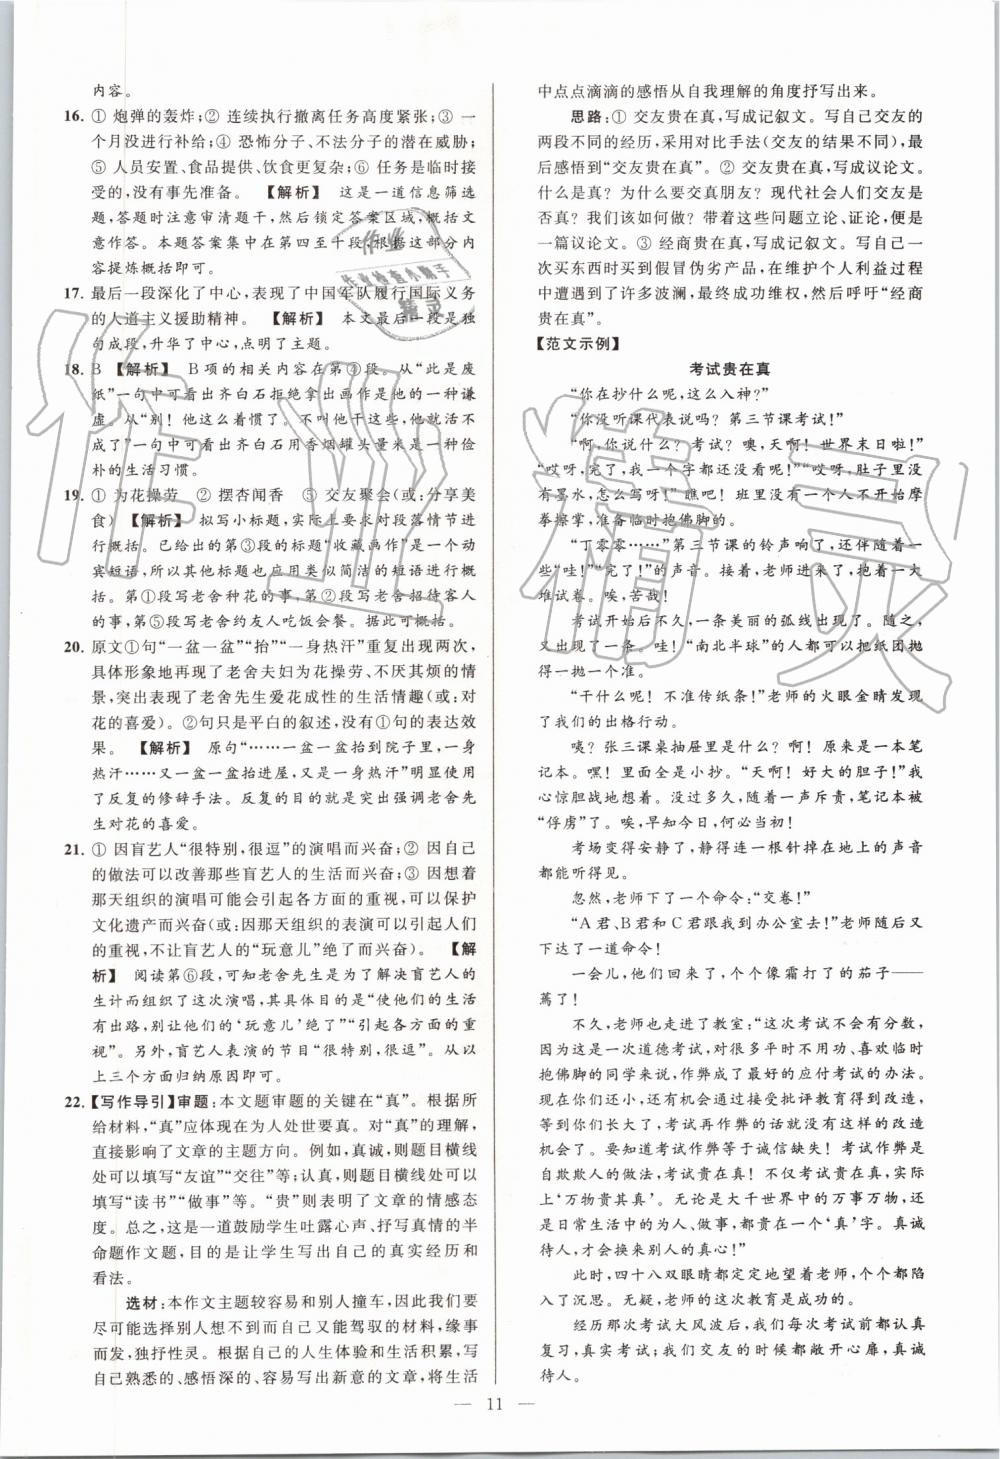 内容。
16. ① 炮弹的轰炸;② 连续执行撤离任务高度紧张;③ 一
个月没进行补给;④ 恐怖分子、不法分子的潜在威胁;
⑤ 人员安置、食品提供、饮食更复杂;⑥ 任务是临时接
受的,没有事先准备。 【解析】 这是一道信息筛选
题,答题时注意审清题干,然后锁定答案区域,概括文
意作答。本题答案集中在第四至十段,根据这部分内
容提炼概括即可。
17. 最后一段深化了中心,表现了中国军队履行国际义务
的人道主义援助精神。 【解析】 本文最后一段是独
句成段,升华了中心,点明了主题。
18. B 【解析】 B项的相关内容在第④段。从“此是废
纸”一句中可看出齐白石拿出画作时的一种谦
虚。从“别！他这么着惯了。不叫他干这些,他就活不
成了”一句中可看出齐白石用香烟罐头量米是一种俭
朴的生活习惯。
19. ① 为花操劳 ② 摆杏闻香 ⑤ 交友聚会(或:分享美
食) 【解析】 拟写小标题,实际上要求对段落情节进
行概括。已给出的第③段的标题“收藏画作”是一个动
宾短语,所以其他标题也应用类似简洁的短语进行概
括。第①段写老舍种花的事,第②段写老舍招待客人
的事,第⑤段写老舍约友人吃饭聚会。据此可概括。
20. 原文①句“一盆一盆”“抬”“一身热汗”重复出现两次,
具体形象地再现了老舍夫妇为花操劳、不厌其烦的情
景,突出表现了老舍先生爱花成性的生活情趣(或:对
花的喜爱)。②句只是平白的叙述,没有①句的表达效
果。 【解析】 原句“……一盆一盆抬到院子里,一身
热汗……又一盆一盆抬进屋,又一身热汗”这一描写运
用了反复的修辞手法。反复的目的就是突出强调老舍先
生对花的喜爱。
21. ① 因盲艺人“很特别,很逗”的演唱而兴奋;② 因自己
的做法可以改善那些盲艺人的生活而兴奋;③ 因想着
那天组织的演唱可能会引起各方面的重视,可以保护
文化遗产而兴奋(或:因那天组织的表演可以引起人们
的重视,不让盲艺人的“玩意儿”绝了而兴奋)。 【解
析】 阅读第⑥段,可知老舍先生是为了解决盲艺人的
生计而组织了这次演唱,其具体目的是“使他们的生活
有出路,别让他们的‘玩意儿’绝了”“引起各方面的重
视”。另外,盲艺人表演的节目“很特别,很逗”。从以
上三个方面归纳原因即可。
22. 【写作导引】审题:本文题审题的关键在“真”。根据所
给材料,“真”应体现在为人处世要真。对“真”的理解,
直接影响了文章的主题方向。例如,真诚,则题目横线
处可以填写“友谊”“交往”等;认真,则题目横线处可以
填写“读书”“做事”等。“贵”则表明了文章的情感态
度。总之,这是一道鼓励学生吐露心声、抒写真情的半
命题作文题,目的是让学生写出自己的真实经历和
看法。
选材:本作文主题较容易和别人撞车,因此我们要
尽可能选择别人想不到而自己又能驾驭的材料,缘事
而发,独抒性灵。根据自己的人生体验和生活积累,写
自己熟悉的、感悟深的、容易写出新意的文章,将生活
中点点滴滴的感悟从自我理解的角度抒写出来。
思路:① 交友贵在真,写成记叙文。写自己交友的
两段不同的经历,采用对比手法(交友的结果不同),最
后感悟到“交友贵在真”。② 交友贵在真,写成议论文。
什么是真？为什么要交真朋友？现代社会人们交友是
否真？我们该如何做？带着这些问题立论、证论,便是
一篇议论文。③ 经商贵在真,写成记叙文。写自己一
次买东西时买到假冒伪劣产品,在维护个人利益过程
中遭遇到了许多波澜,最终成功维权,然后呼吁“经商
贵在真”。
【范文示例】
考试贵在真
“你在抄什么呢,这么入神?”
“你没听课代表说吗？第三节课考试!”
“啊,你说什么？考试？噢,天啊！世界末日啦!”
“哎呀,完了,我一个字都还没看呢!”“哎呀,肚子里没
有墨水,怎么写呀!”瞧吧！班里没有一个人不开始摩
拳擦掌,准备临时抱佛脚的。
“丁零零……”第三节课的铃声响了,还伴随着一
些“哇!”“完了!”的声音。接着,老师进来了,抱着一大
堆试卷。唉,苦哉!
考试开始后不久,一条美丽的弧线出现了。随之,
又一条出现了。哇！“南北半球”的人都可以把纸团抛
得一扔一个准。
“干什么呢！不准传纸条!”老师的火眼金睛发现
了我们的出格行动。
咦？张三课桌抽屉里是什么？啊！原来是一本笔
记本。嘿！里面全是小抄。“天啊！好大的胆子!”我
心惊胆战地想着。没过多久,随着一声斥责,笔记本被
“俘虏”了。唉,早知今日,何必当初!
考场变得安静了,静得连一根针掉在地上的声音
都能听得见。
忽然,老师下了一个命令:“交卷!”
“A君、B君和C君跟我到办公室去!”老师随后又
下达了一道命令!
一会儿,他们回来了,个个像霜打了的茄子——
蔫了!
不久,老师也走进了教室:“这次考试不会有分数,
因为这是一次道德考试,对很多平时不用功、喜欢临时
抱佛脚的同学来说,作弊成了最好的应付考试的办法。
等到你们将来走上社会,没有接受批评教育得到改造,
等到你们考试再作弊的话就没有这样的好的改造
机会了。要知道考试作弊等于诚信缺失！考试作弊是
自欺欺人的做法,考试贵在真！不仅考试贵在真,实际
上‘万物贵其真’。无论是大千世界中的万事万物,还
是日常生活中的为人、做事,都贵在一个‘真’字。真诚
待人,才会换来别人的真心!”
此时,四十八双眼睛都定定地望着老师,个个都陷
入了沉思。无疑,老师的这次教育是成功的。
经历那次考试大风波后,我们每次考试前都认真
复习,真实考试;我们交友的时候都敞开心扉,真诚
待人。
— 11 —
作业
作业检查小助手
精灵
作业精灵